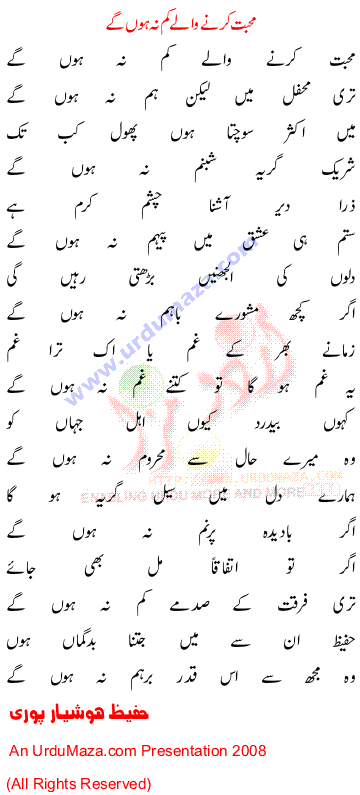 محبت کرنے والے کم نہ ہوں گے
محبت کرنے والے کم نہ ہوں گے
تری محفل میں لیکن ہم نہ ہوں گے
میں اکثر سوچتا ہوں پھول کب تک
شریک گریہ شبنم نہ ہوں گے
ذرا دیر آشنا چشم کرم ہے
ستم ہی عشق میں پیہم نہ ہوں گے
دلوں کی الجھنیں بڑھتی رہیں گی
اگر کچھ مشورے باہم نہ ہوں گے
زمانے بھر کے غم یا اک ترا غم
یہ غم ہو گا تو کتنے غم نہ ہوں گے
کہوں بیدرد کیوں اہل جہاں کو
وہ میرے حال سے محروم نہ ہوں گے
ہمارے دل میں سیل گریہ ہو گا
اگر بادیدہ پرنم نہ ہوں گے
اگر تو اتفاقاً مل بھی جائے
تری فرقت کے صدمے کم نہ ہوں گے
حفیظ ان سے میں جتنا بدگماں ہوں
وہ مجھ سے اس قدر برہم نہ ہوں گے
حفیظ ہوشیار پوری
An UrduMaza.com Presentation 2008
(All Rights Reserved)
www.urdumaza.com
WWW.URDUMAZA.COM
ENABLING URDU MORE AND MORE